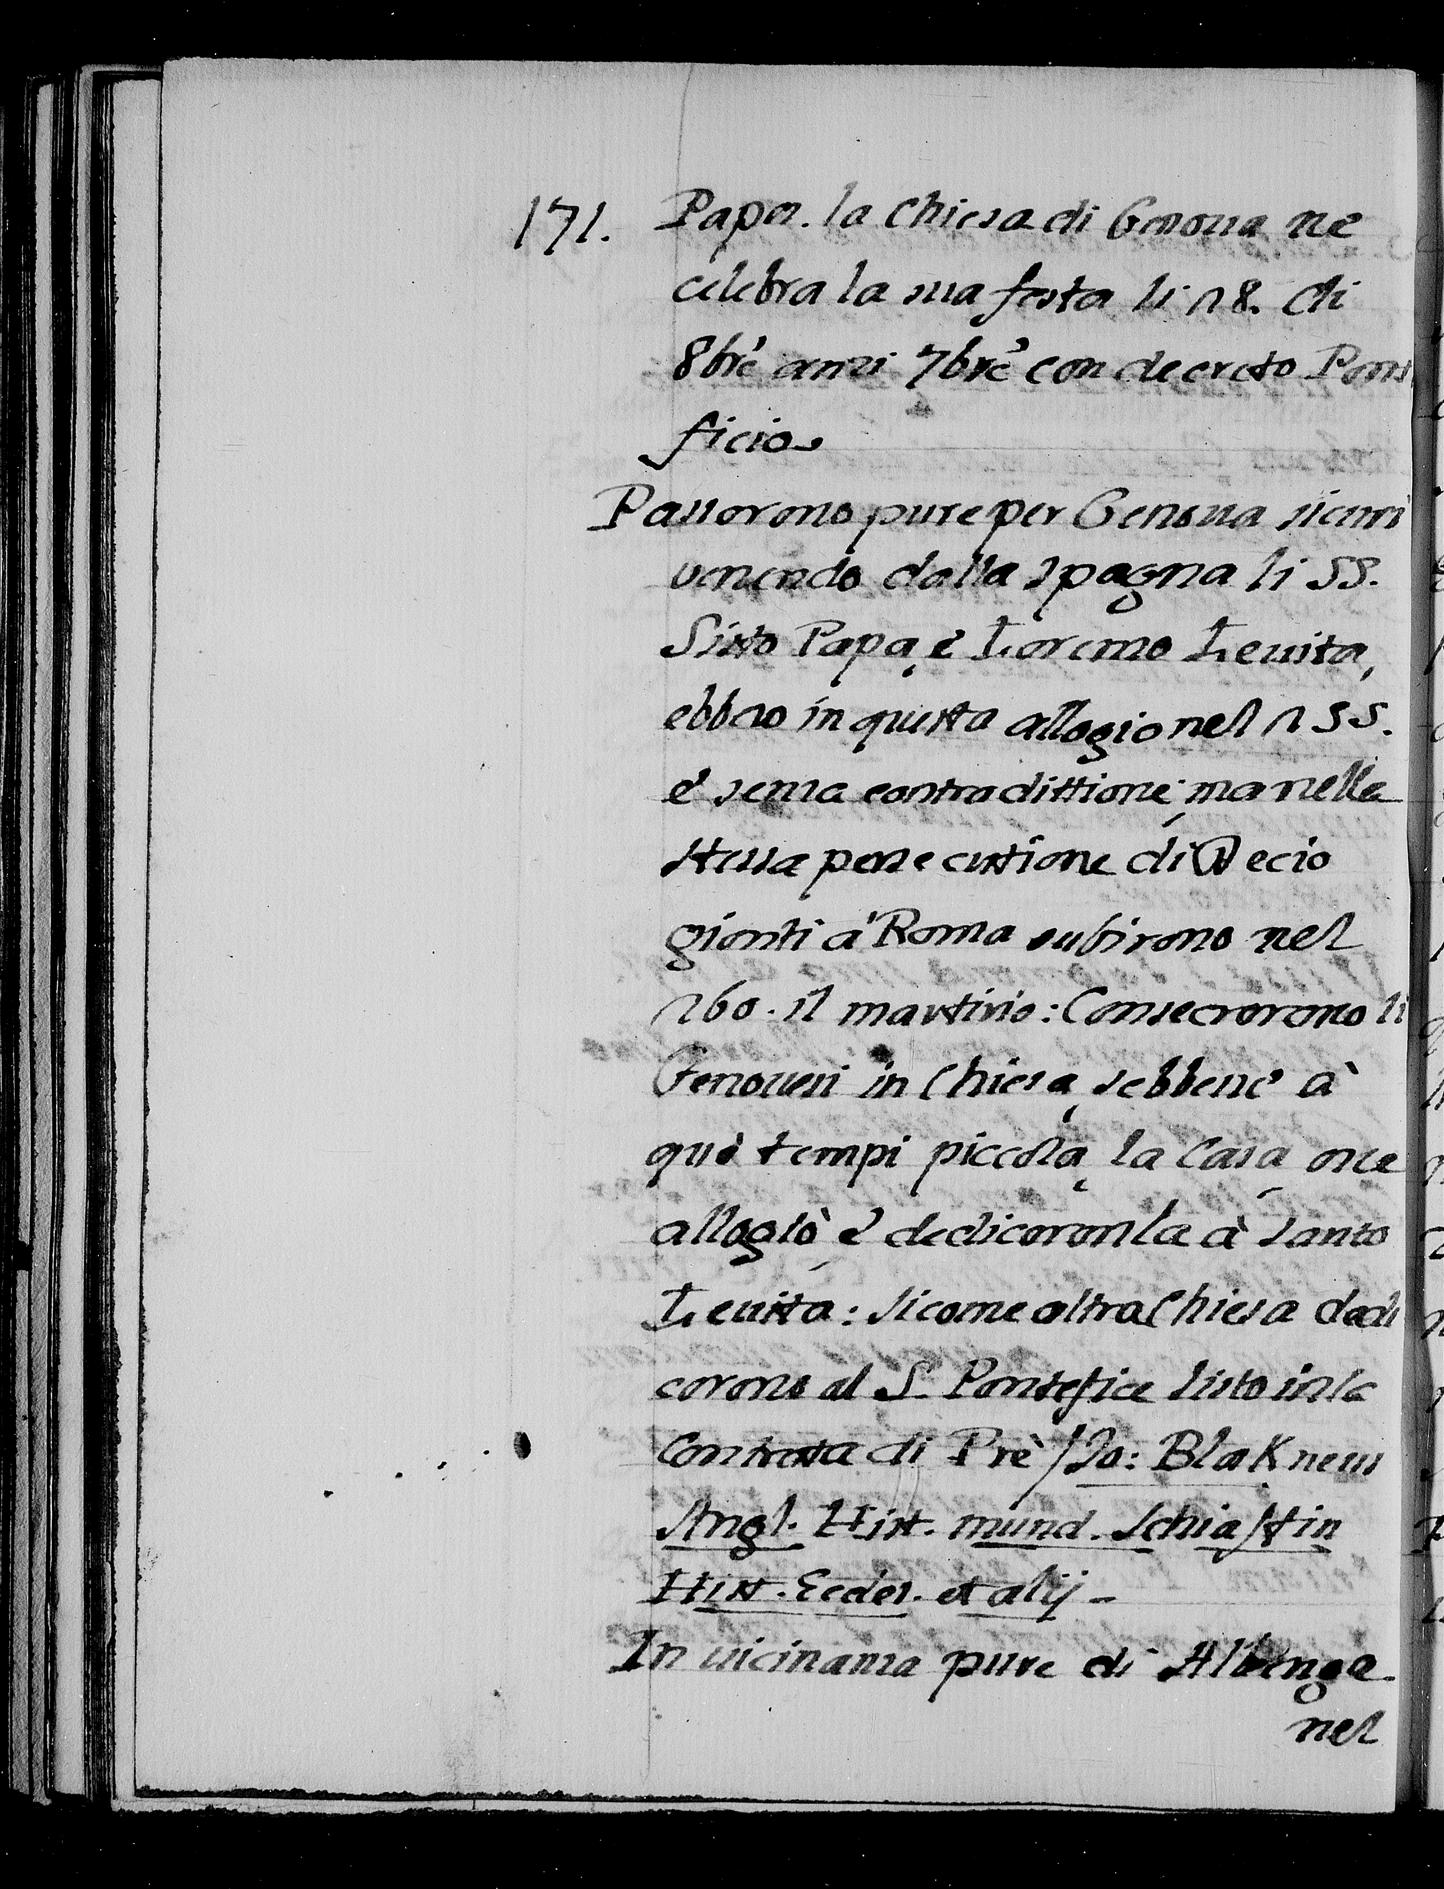 171. Papa. la Chiesa di Genoua ne
celebra la sua festa li 28. di
8brè anzi 7brè con decreto Ponti
ficio
Passorono pure per Genoua sicuri
uenendo dalla Spagna li SS.
Sisto Papa, è Lorenzo Leuita,
ebbero in questa allogio nel 255.
è senza contradittione, ma nella
stessa persecutione di Decio
gionti à Roma subirono nel
260. il martirio: Consecrorono li
Genouesi in Chiesa, sebbene à
què tempi piccola, la Casa, oue
allogiò, è dedicoronla à Santo
Leuita: sicome altra Chiesa dedi
corono al S. Pontefice Sisto in la
Contrata di Prè / Jo: Blaknew
Angl. Hist. mund. Schiaffin
Hist. Eccles. et alij -
In uicinanza pure di Albenga
nel